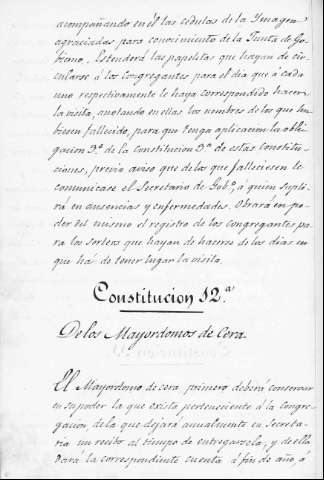 acompañando en él las cédulas de la Imagen
agraciadas para conocimiento de la Junta de Go-
bierno, Estenderá las papeletas que hayan de cir-
cularse á los Congregantes para el dia que á cada
uno respectivamente le haya correspondido hacer
la visita, anotando en ellas los nombres de los que hu-
biesen fallecido, para que tenga aplicacion la obli-
gacion 3.ª de la Constitucion 3.ª de estas Constitu-
ciones, previo aviso que de los que falleciesen le
comunicase el Secretario de Gob.º, á quien supli-
rá en ausencias y enfermedades. Obrará en po-
der del mismo el registro de los Congregantes pa-
ra los sorteos que hayan de hacerse de los dias en
que há de tener lugar la visita.
Constitucion 12.ª
De los Mayordomos de Cera.
El Mayordomo de cera, primero deberá conservar
en su poder la que exista perteneciente á la Congre-
gacion, de la que dejará anualmente en Secreta-
ria un recibo al tiempo de entregarsela; y de ella
dará la correspondiente cuenta á fin de año, á